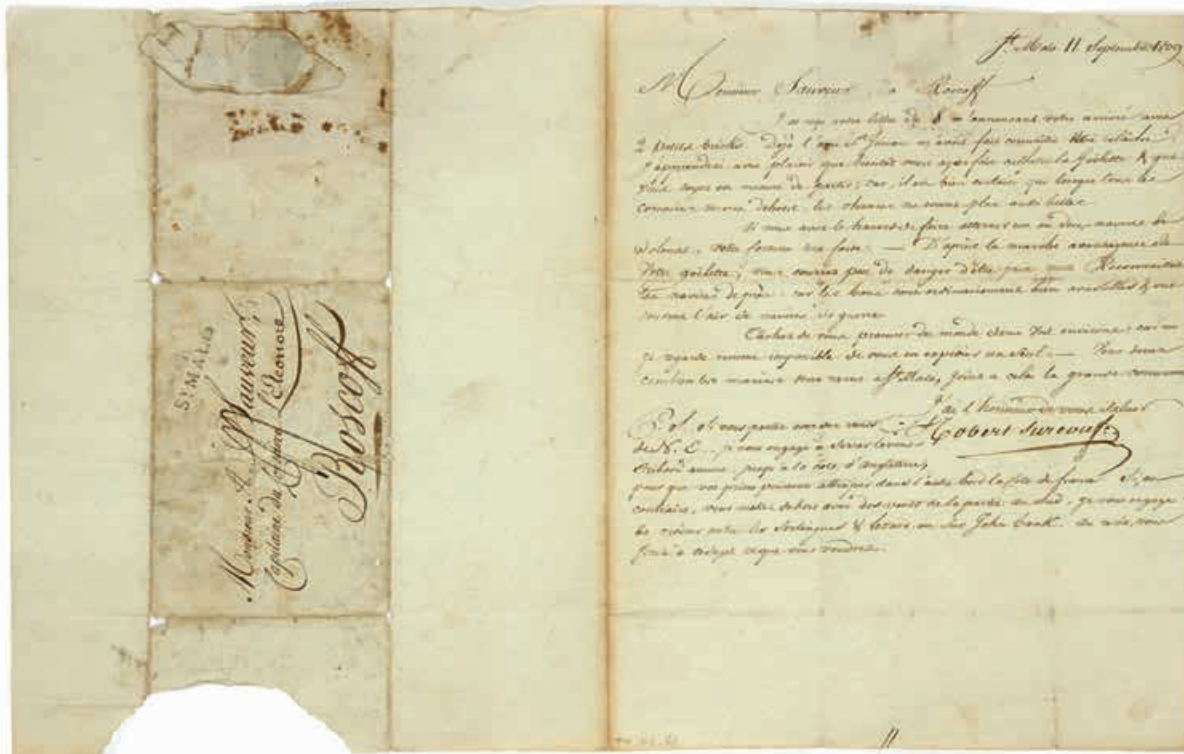 St. MALO
Monsieur A. Sauveur
Capitaine du Corsaire l'Eléonore
Roscoff
St. Malo 11 Septembre 1809
Monsieur Sauveur à Roscoff
J'ai reçu votre lettre du 8 m'annonçant votre arrivée avec
2 petits bricks. Déjà l'ami St. m'avait fait connaître votre relâche
J'apprendrai avec plaisir que bientôt vous ayez fait la goëlette & que
vous soyez en mesure de partir, car, il est bien certain que lorsque tous les
corsaires seront dehors, les chances ne seront plus aussi belles.
Si vous avez le de faire un ou deux navires de
votre fortune sera faite. — D'après la marche avantageuse de
votre goëlette, vous courrez peu de danger d'être pris — Reconnaissez
les navires de près car les bons sont ordinairement bien & ont
souvent l'air de navires de guerre.
Tachez de vous procurer du monde dans vos environs, car
je regarde comme impossible de vous en expédier un seul. — Vous savez
combien les marins sont rares à St. Malo, joint à cela la grande
J'ai l'honneur de vous saluer
Robert Surcouf
P.S. Si vous partez avec des vents
de N. E. je vous engage à
jusqu'à la côte d'Angleterre,
pour que vos prises puissent attraper dans l'autre bord la côte de france. Si, au
contraire, vous mettez dehors avec des vents de la partie du sud, je vous engage
de croiser entre les Sorlingues & Lézard, ou sur John bank. Au reste, vous
ferez à ce que vous voudrez.